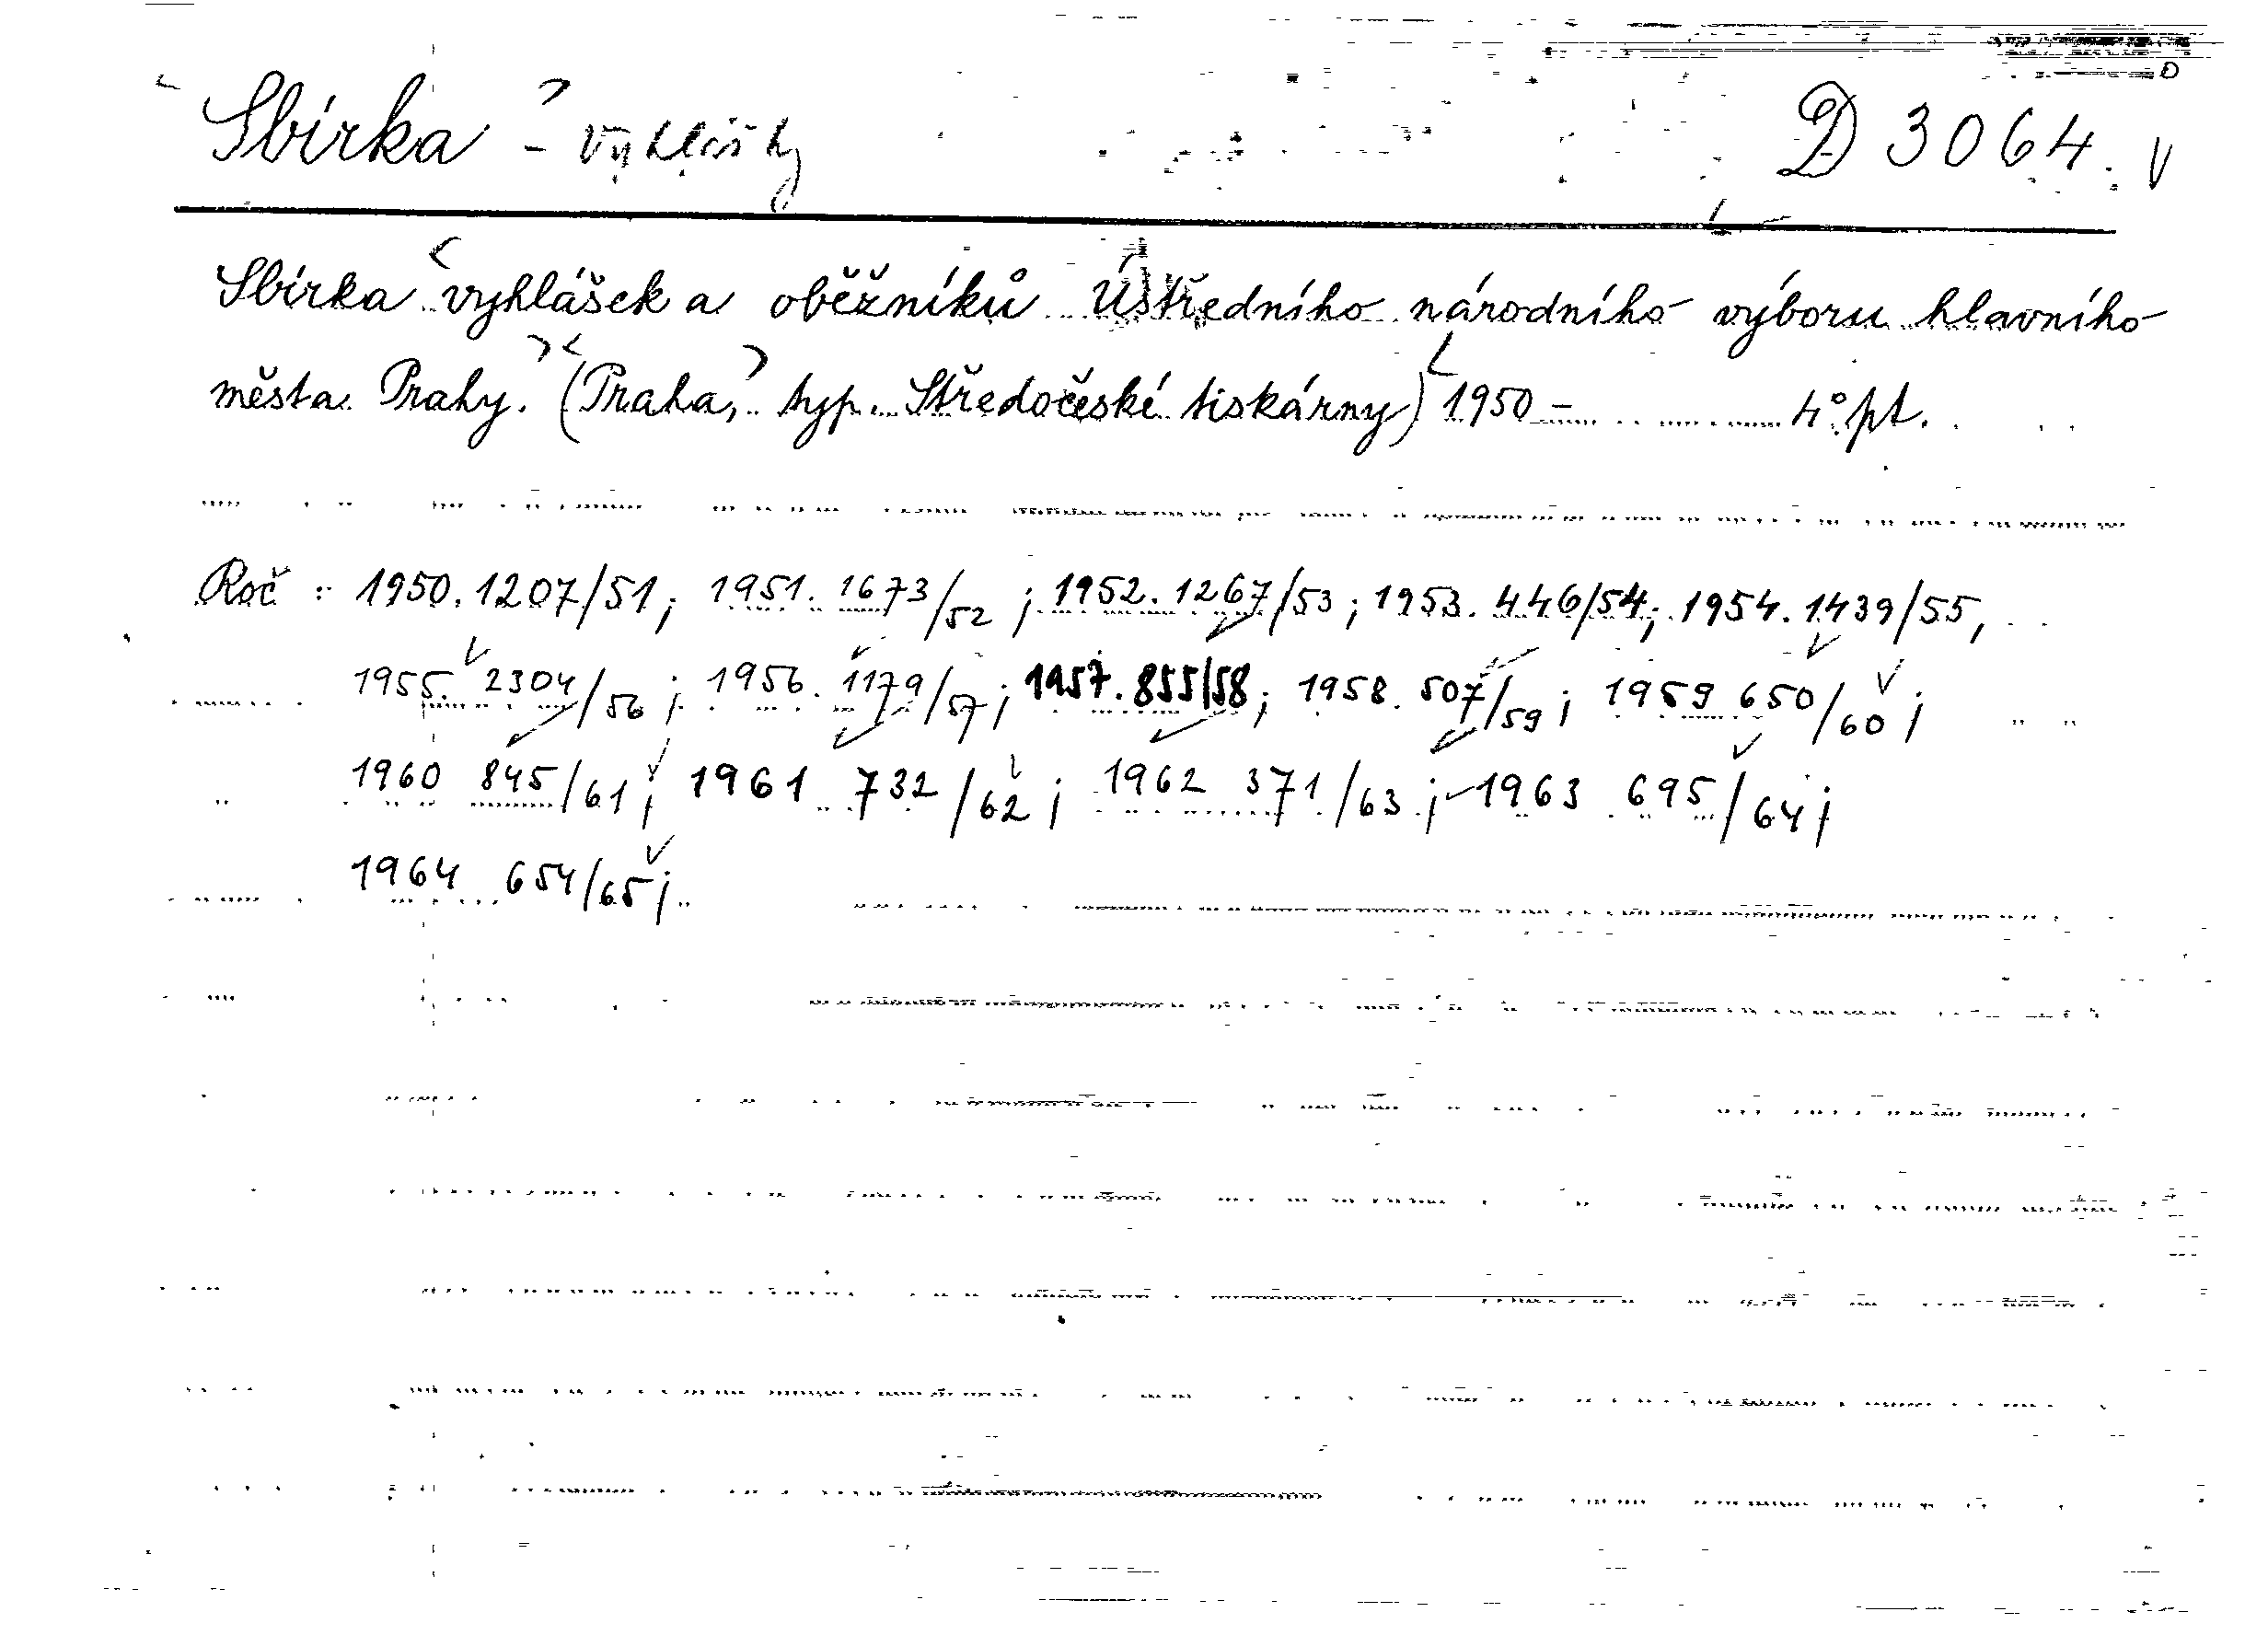 Sbírka - vyhlášky D 3064.
Sbírka vyhlášek a oběžníků Ústředního národního výboru hlavního
města Prahy. (Praha, typ. Středočeské tiskárny) 1950 - 4° pt.
Roč : 1950. 1207/51; 1951. 1673/52; 1952. 1267/53; 1953. 446/54; 1954. 1439/55,
1955. 2304/56; 1956. 1179/57; 1957. 855/58; 1958. 507/59; 1959 650/60;
1960 845/61; 1961 732/62; 1962 371/63; 1963 695/64;
1964 654/65;